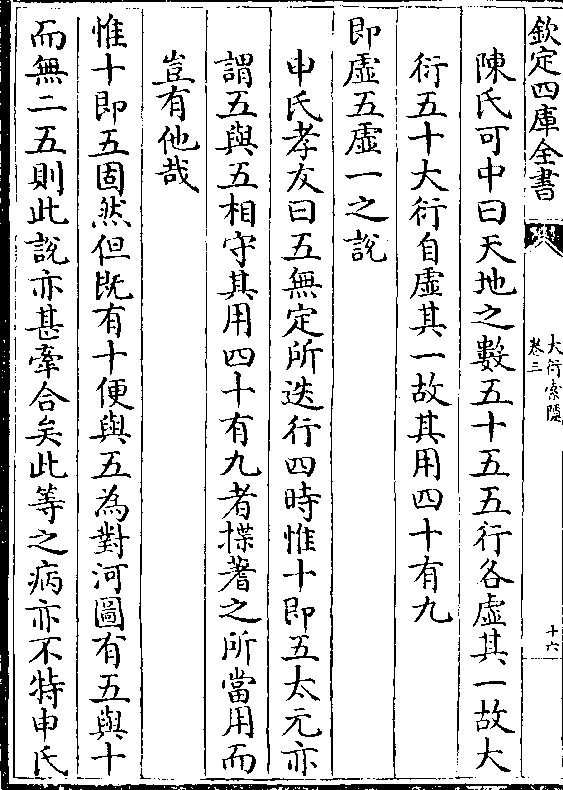 欽定四庫全書
大衍索隱
卷三
十六
陳氏可中曰天地之數五十五五行各虛其一故大
衍五十大衍自虛其一故其用四十有九
即虛五虛一之說
申氏孝友曰五無定所迭行四時惟十即五太元亦
謂五與五相守其用四十有九者揲蓍之所當用而
豈有他哉
惟十即五固然但既有十便與五為對河圖有五與十
而無二五則此說亦甚牽合矣此等之病亦不特申氏